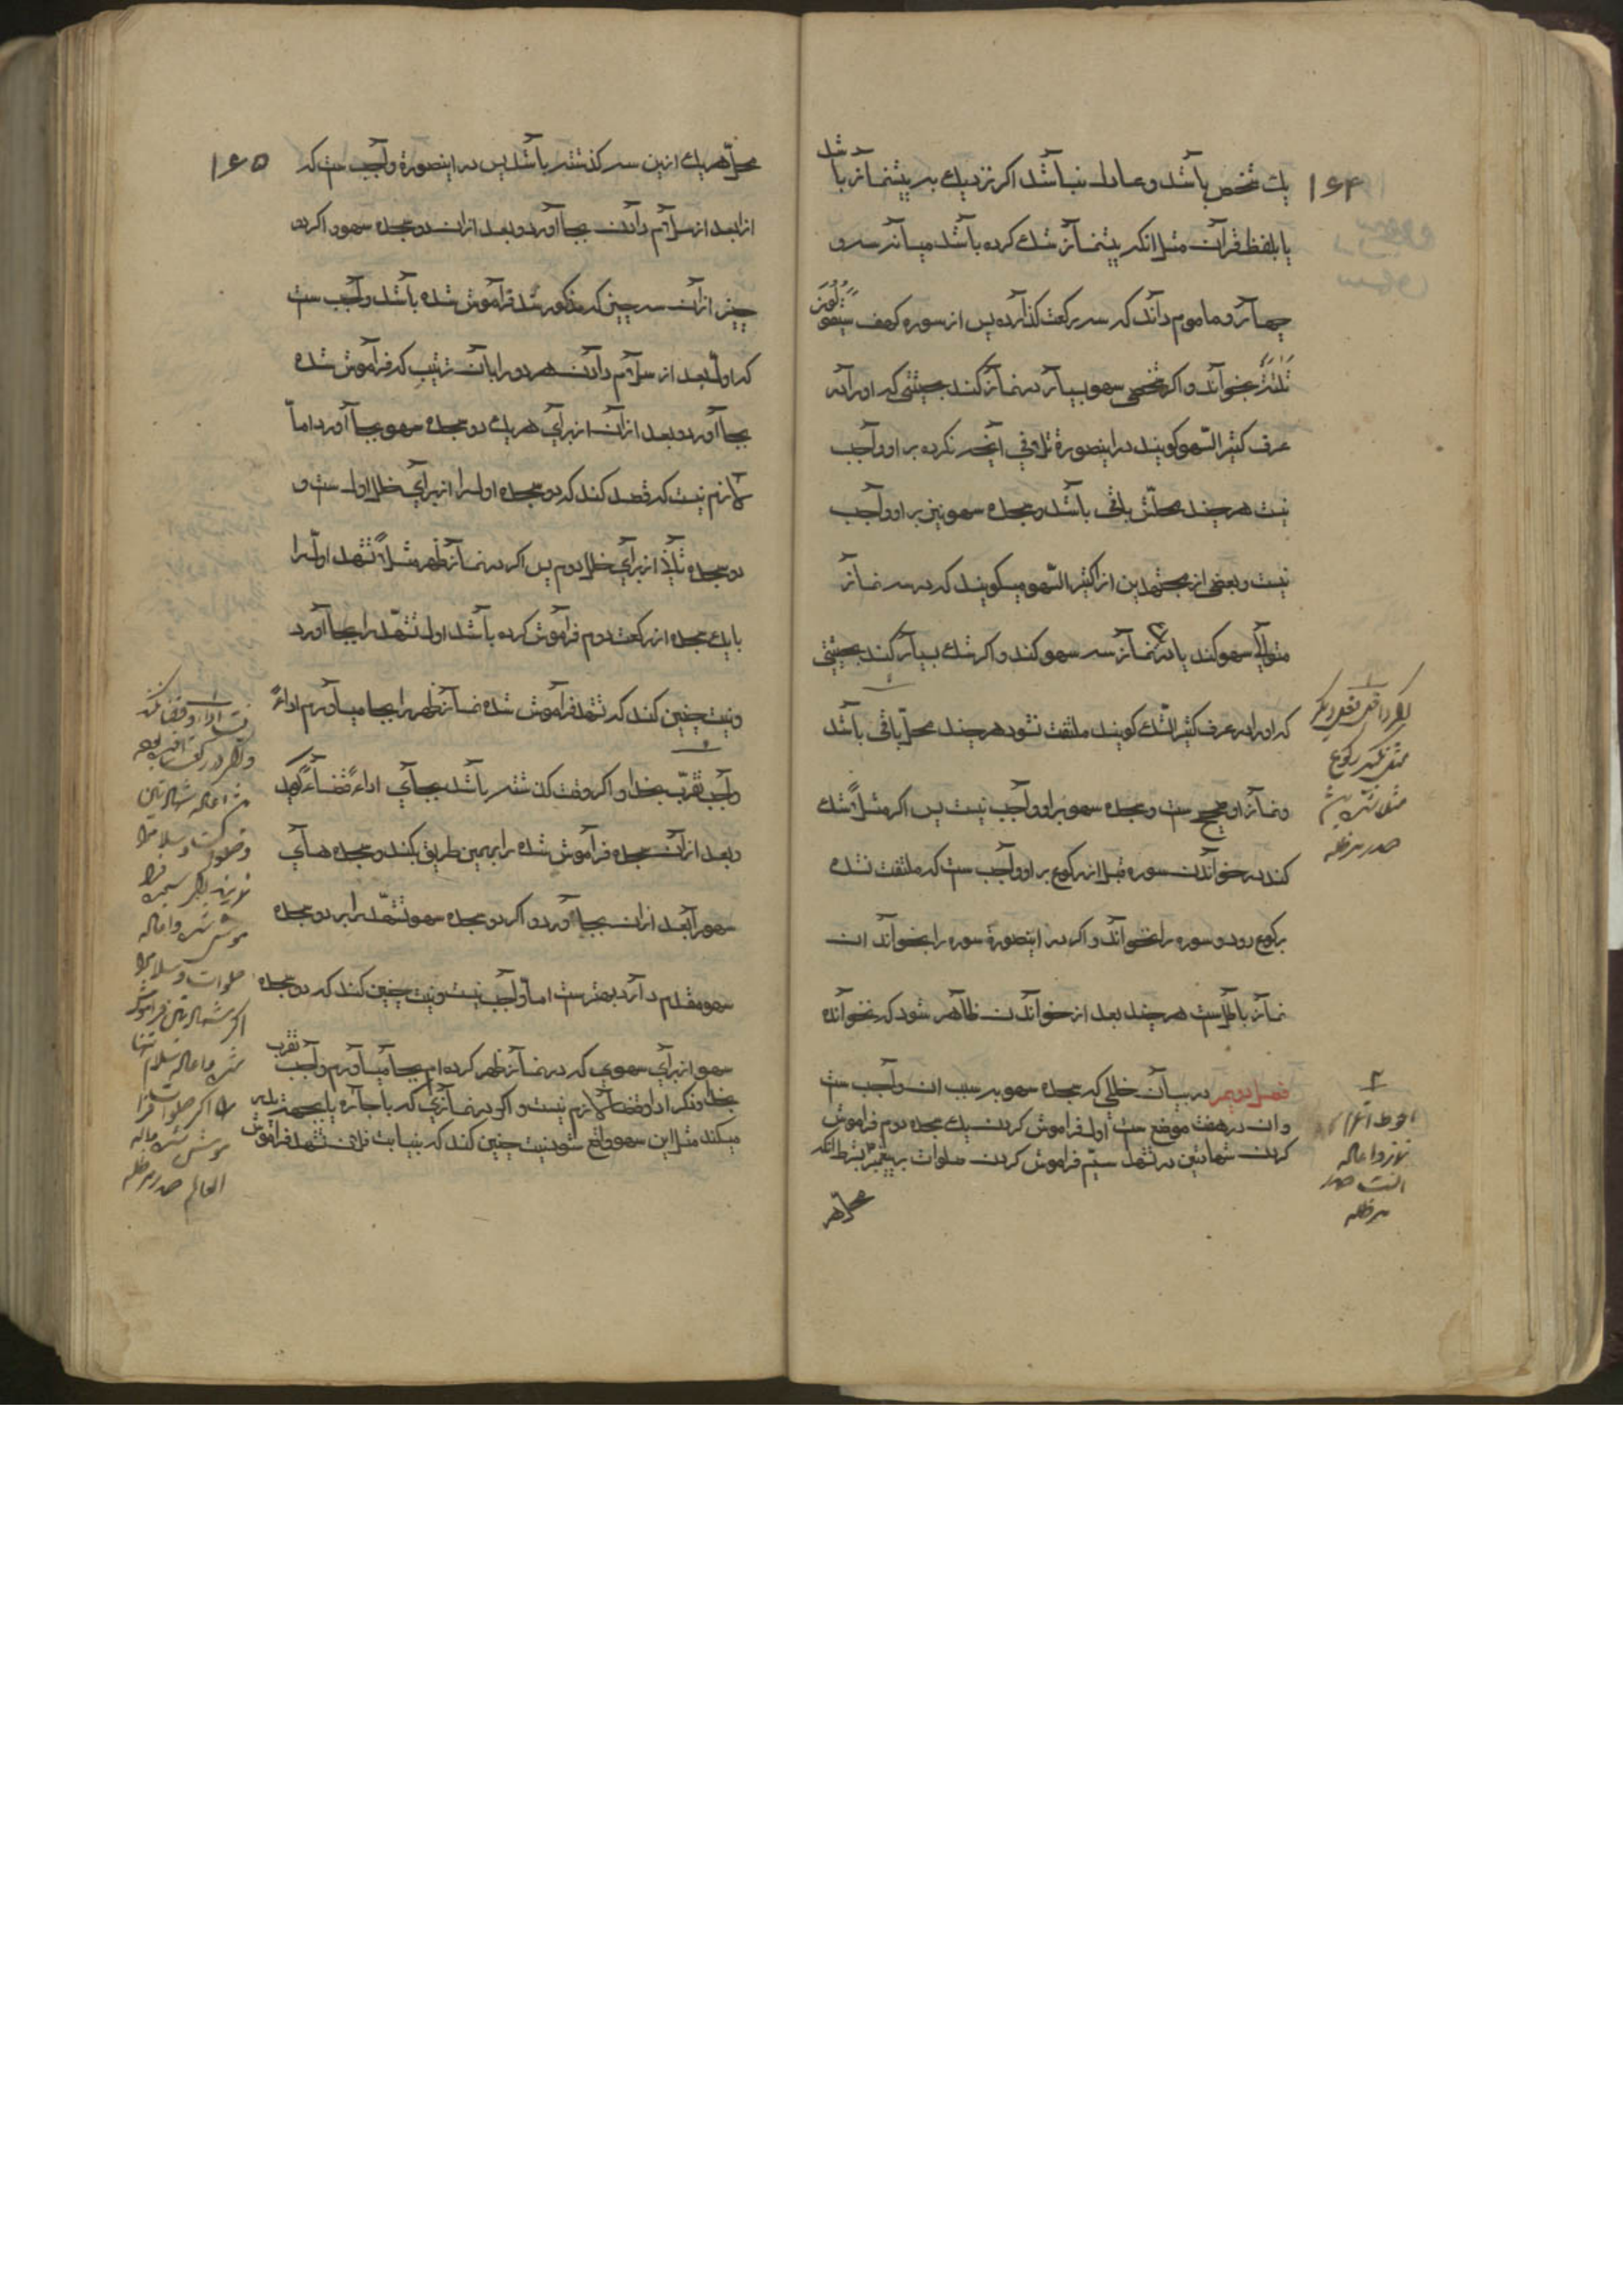 ۱۶۴
یک شخص باشد و عادل نباشد اکر نزدیک به پیشنماز باشد
یا بلفظ قرآن مثل انکه پیشنماز شک کرده باشد میانه سه و
چهار و ماموم داند که سه رکعت کذارده پس از سوره کهف سَیَقُولُونَ
ثَلٰثَةٌ بخواند و اکر شخصی سهو بسیار در نماز کند بحیثیتی که او را در
عرف کثیر السّهو کویند در اینصورة تلافی آنچه نکرده بر او واجب
نیست هر چند محلّش باقی باشد و سجده سهو نیز بر او واجب
نیست و بعضی از مجتهدین از اکثیر السّهو میکویند که در سه نماز
متوالی سهو کند یا در نماز سه سهو کند و اکر شک بسیار کند بحیثیتی
که او را در عرف کثیر الشّک کویند ملتفت نشود هر چند محلّ باقی باشد
و نماز او صحیح ست و سجده سهو بر او واجب نیست پس اکر مثلاً شک
کند در خواندن سوره قبل از رکوع بر او واجب ست که ملتفت نشده
برکوع رود و سوره را نخواند و اکر در اینصورة سوره را بخواند ان
نماز باطلست هر چند بعد از خواندن ظاهر شود که نخوانده
فصل دویم در بیان خللی که سجده سهو بسبب ان واجب ست
و ان در هفت موضع ست اول فراموش کردن یک سجده دوم فراموش
کردن شهادتین در تشهد سیّم فراموش کردن صلوات بر پیغمبر بشرط انکه
محل هر
مدظله
صدر مدظله
۱۶۵
محلّ هر یک ازین سه کذشته باشد پس در اینصورة واجب ست که
انرا بعد از سلام دادن بجا آورد و بعد از ان دو سجده سهو و اکر دو
چیز از آن سه چیز که مذکور شد فراموش شده باشد واجب ست
که اولّ بعد از سلام دادن هر دو را بآن ترتیب که فراموش شده
بجا آورد و بعد از آن از برای هر یک دو سجده سهو بجا آورد امّا
لازم نیست که قصد کند که دو سجده اول را از برای خلل اول ست و
دو سجده ثانی از برای خلل دوم پس اکر در نماز ظهر مثلاً تشهد اوّل را
با یک سجده از رکعت دوم فراموش کرده باشد اول تشهّد را بجا آورد
و نیت چنین کند که تشهد فراموش شده نماز ظهر را بجا میاورم اداءً
واجب تقرّب بخدا و اکر وقت کذشته باشد بجای اداءً قضاءً کوید
و بعد از آن سجده فراموش شده را بهمین طریق بکند و سجده های
سهو را بعد از ان بجا آورد و اکر دو سجده سهو تشهّد را بر دو سجده
سهو مقدم دارد بهتر ست امّا واجب نیست و نیت چنین کند که دو سجده
سهو از برای سهوی که در نماز ظهر کرده ام بجا میاورم واجب تقرب
بخدا و ذکر ادا و قضا لازم نیست و اکر در نمازی که باجاره یا بجهة پدر
میکند مثل این سهو واقع شود نیت چنین کند که بنیابت فلان تشهد فراموش
العالم صدر مدظله